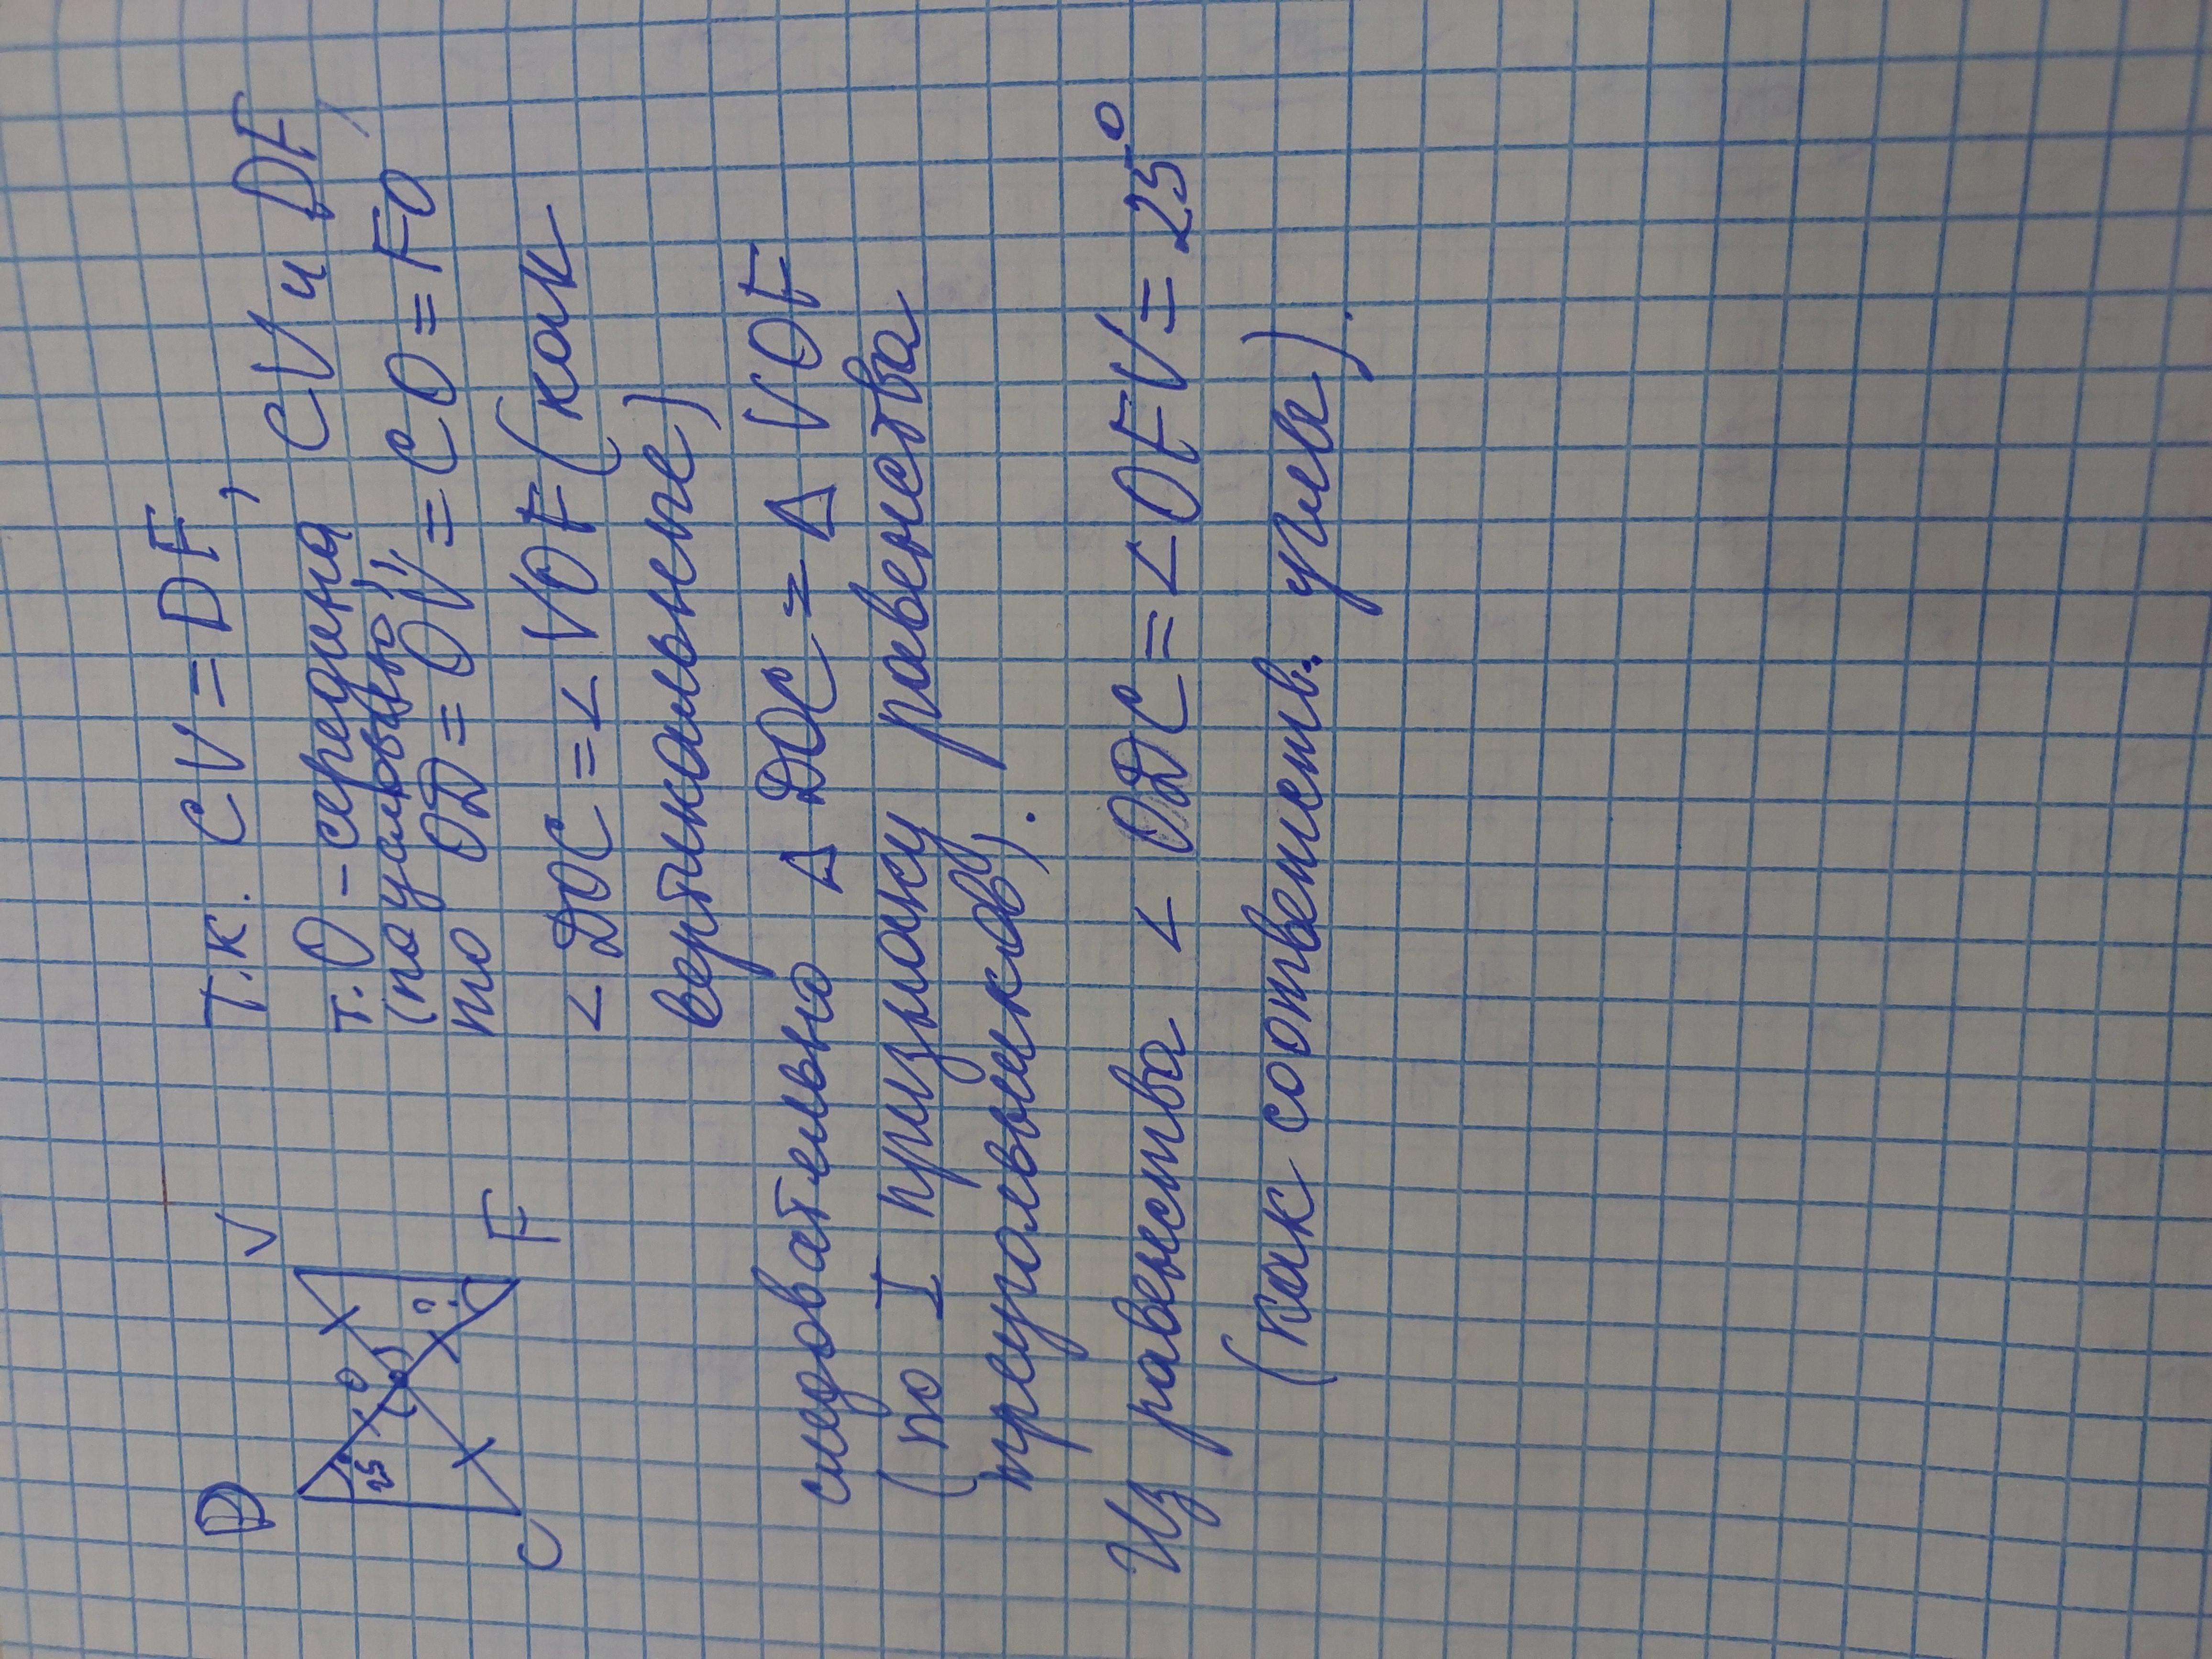 D V
25° O
? C F
Т.к. CV = DF,
т. O - середина CV и DF,
(по условию),
то OD = OV = CO = FO
< DOC = < VOF (как
вертикальные)
следовательно Δ DOC = Δ VOF
(по I признаку равенства
треугольников).
Из равенства < ODC = < OFV = 25°
(как соответств. углы).